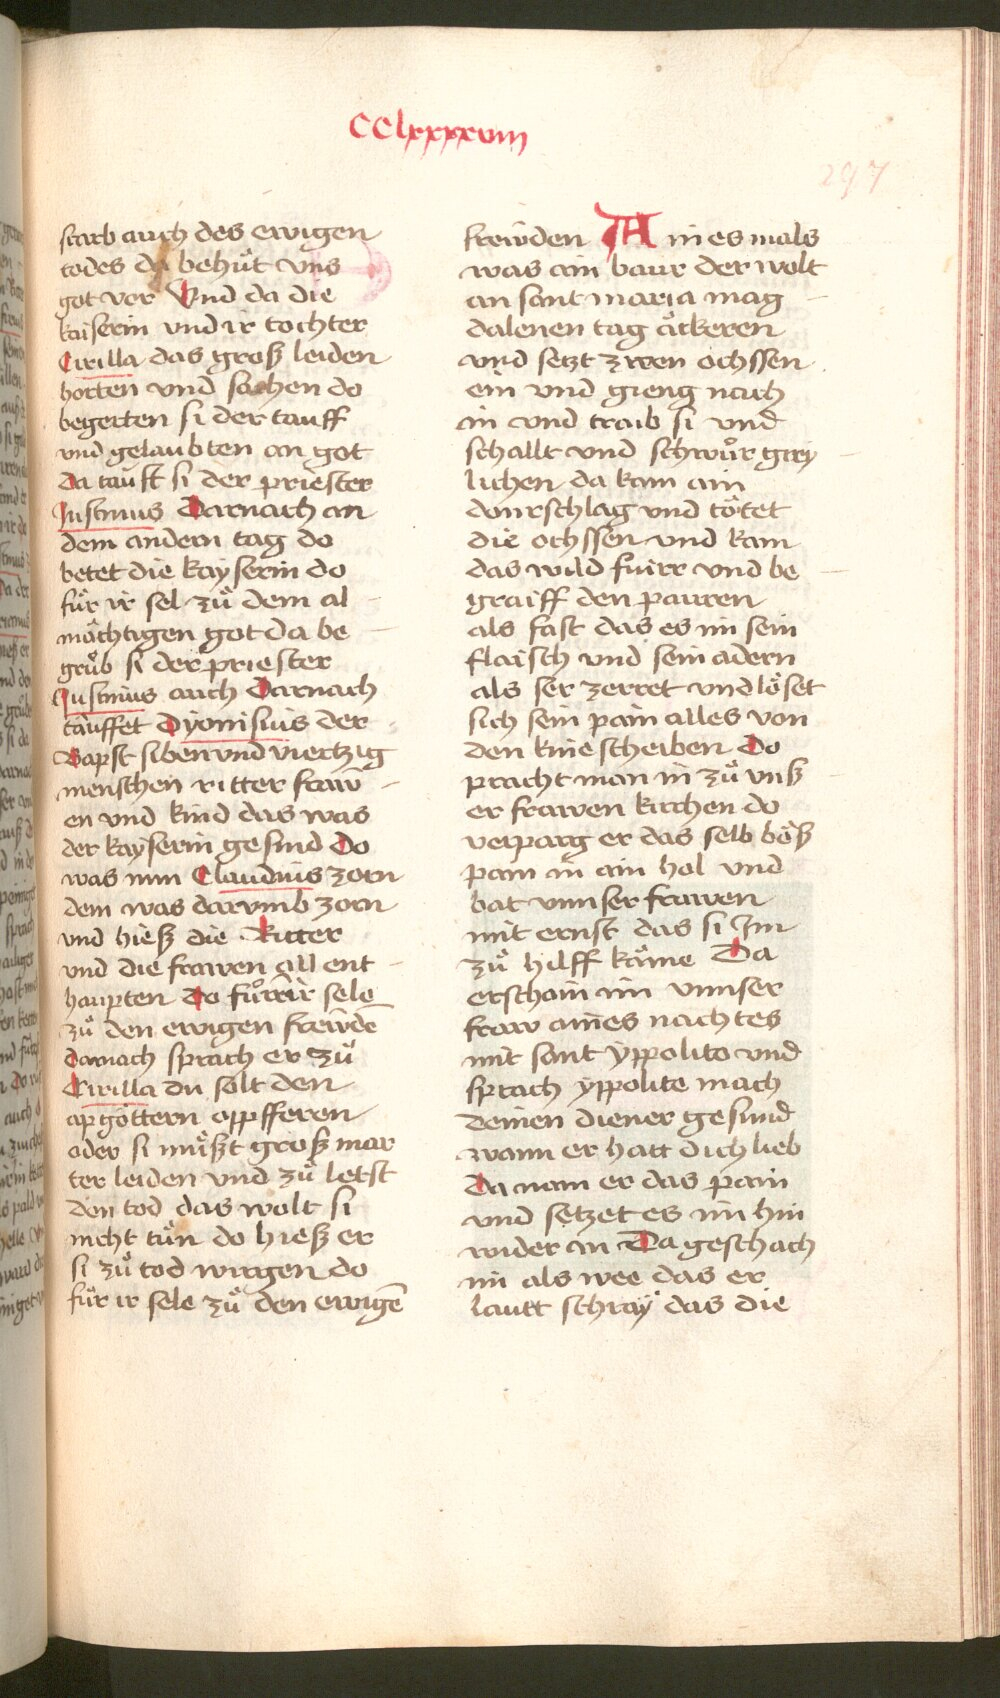 CClxxxxviii
297
starb auch des ewigen
todes da behuͤt vns
got vor Vnd da die
kaiserin vnd ir tochter
Cirilla das groß leiden
horten vnd sachen do
begerten si der tauff
vnd gelaubten an got
Da tauft si der priester
Justinus Darnach an
dem andern tag do
betet die kayserin do
fuͤr ir sel zuͦ dem al
maͤchtigen got da be
gruͦb si der priester
Justinus auch Darnach
tauffet Dyonisius der
Bapst siben vnd viertzig
menschen ritter fraw̄
en vnd kind das was
der kayserin gesind Do
was nun Claudius zorn
dem was darvmb zorn
vnd hieß die Ritter
vnd die frawen all ent
haupten Do fuͦrn ir sele
zuͦ den ewigen frewdē
Darnach sprach er zuͦ
Cirilla du solt den
apgoͤttern opfferen
oder si muͤßt groß mar
ter leiden vnd zuͦ letst
den tod das wolt si
nicht tuͦn do hieß er
si zuͦ tod wurgen do
fuͤr ir sele zuͦ den ewigē
frewden Ainesmals
was ain baur der wolt
an sant maria mag
dalenen tag aͤckeren
vnd setzt zwen ochssen
ein vnd gieng nach
in vnd traib si vnd
schallt vnd schwuͦr grey
lichen da kam ain
donrschlag vnd toͤtet
die ochssen vnd kam
das wild fuirr vnd be
graiff den pauren
als fast das es im sein
flaisch vnd sein adern
als ser zerret vnd loͤset
sich sein pain alles von
den knie scheiben Do
pracht man in zuͦ vnß
er frawen kirchen do
verparg er das selb boͤß
pain in ain hol vnd
bat vnnser frawen
mit ernst das si Im
zuͦ hilff kaͤme Da
erschain im vnnser
fraw aines nachtes
mit sant ypolito vnd
sprach yppolite mach
deinen diener gesund
wann er hatt dich lieb
Da nam er das pain
vnd setzet es im hin
wider an Da geschach
im als wee das er
lautt schray das die